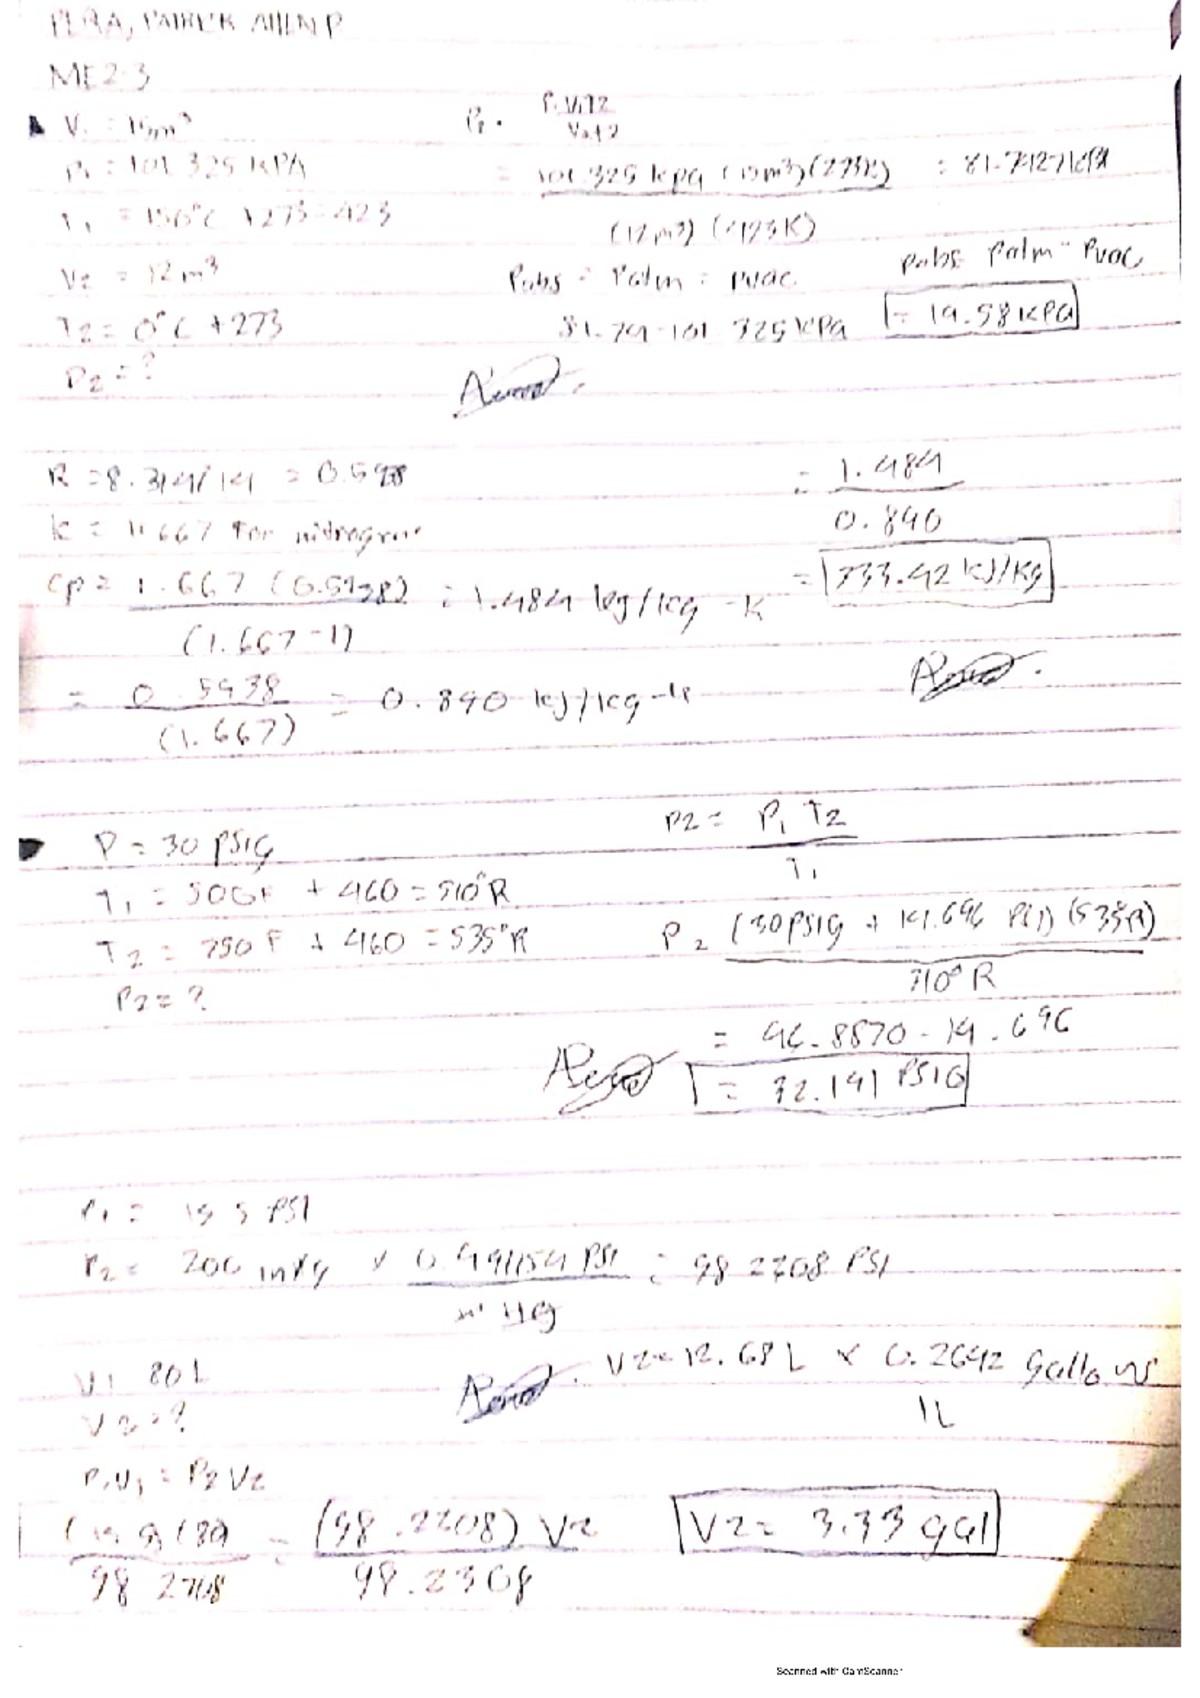 ME2-3
V1 = 15m³
P1 = 101.325 KPA
T1 = 150°C +273=423
V2 = 12m³
T2 = 0°C +273
P2 = ?
P1V1T2
= 101.325 kpa (15m³)(273K) = 81.7427kPa
(12m³) (423K)
Pabs = Patm = Pvac
81.74-101.325kPa
Pabs = Patm - Pvac
= 19.58KPa
R = 8.314/14 = 0.5938
k = 1.667 for
Cp = 1.667 (0.5938) = 1.484 /kg -K
(1.667-1)
= 0.5938 = 0.890 kJ/kg-K
(1.667)
= 1.484
0.890
= 733.42 KJ/Kg
P = 30 PSIG
T1 = 50 F + 460 = 510°R
T2 = 750 F + 460 = 535°R
P2 = ?
P2 = P1 T2
T1
P2 (30PSIG + 14.696 PSI) (535°R)
510° R
= 46.8870 - 14.696
= 32.191 PSIG
P1 = 15.5 PSI
P2 = 200 inHg x 0.491154 PSI = 98.2308 PSI
HG
V1 80 L
V2 = ?
P1V1 = P2V2
(15.5)(80) = (98.2308) V2
98.2308 98.2308
V2 = 12.68 L x 0.2642 gallons
1L
V2 = 3.33 gal
Scanned with CamScanner